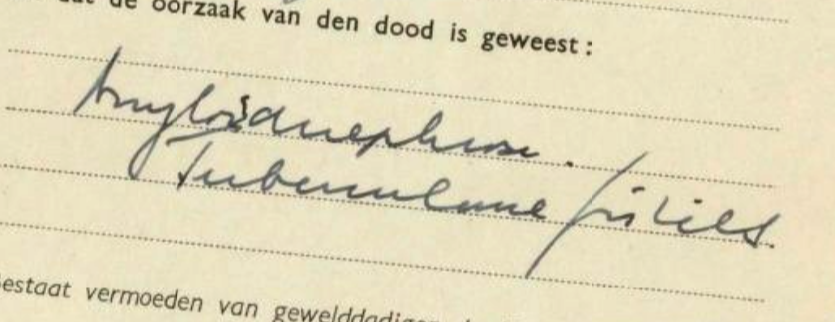 de oorzaak van den dood is geweest:
Amyloidnephrose.
Tuberculeuse fistels.
estaat vermoeden van gewelddadigen